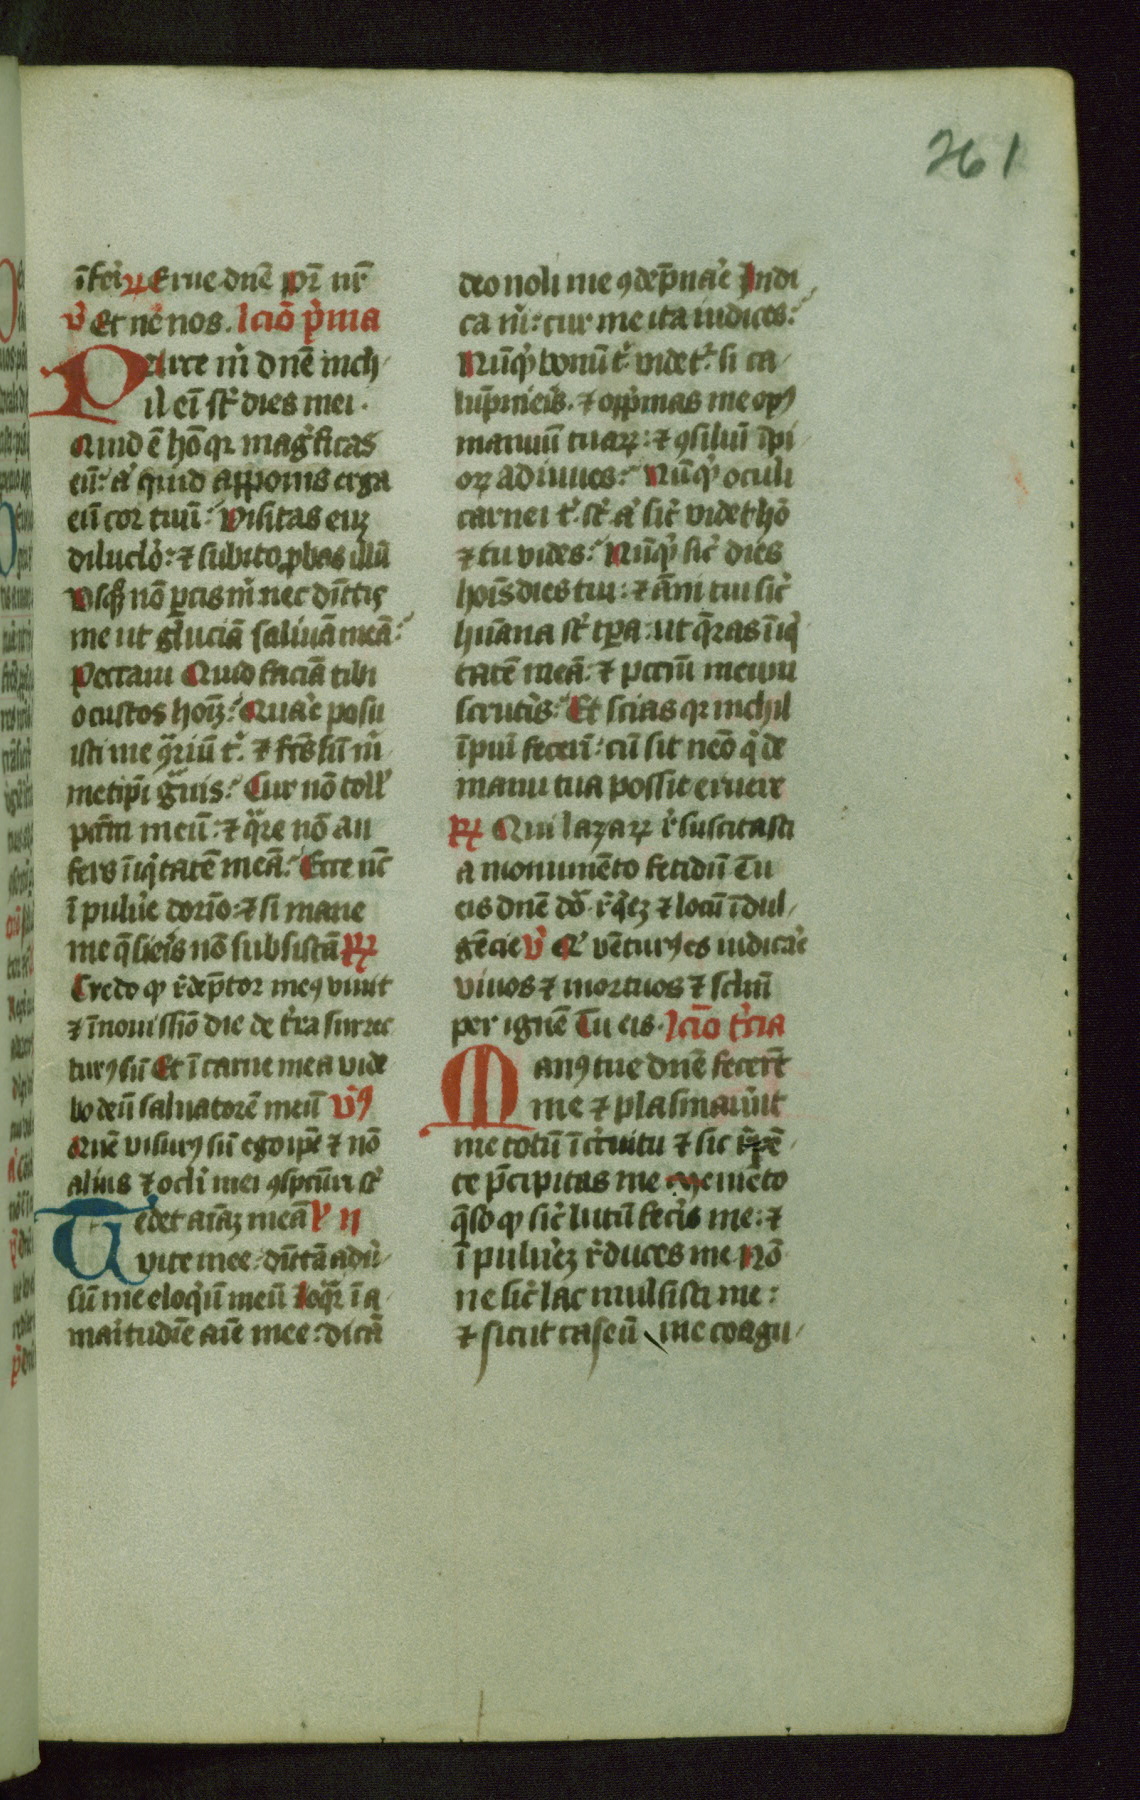 261
īferi ℟ Erue dnē Pr̄ nr̄
v̉ Et nē nos. lc̄io p̉ma
Parce m̉ dnē nich
il eī st̉ dies mei.
Quid ē hō qr magn̉ficas
eū: a̓ quid apponis erga
eū cor tuū: Visitas euʒ
diluclo̓: ⁊ subito ꝓbas illū
Vsqʒ nō ꝑcis m̉ nec dīttis
me ut gluciā saliuā meā:
Peccaui Quid faciā tibi
o custos hoīʒ: Quar̉e posu
isti me ꝯr̉riū t̉. ⁊ fc̄s sū m̉
metip̄i g̉uis: Cur nō toll̉
pctm̄ meū: ⁊ q̉re nō au
fers īiq̉tatē meā: Ecce nc̄
ī puluer̉e dorīo: ⁊ si mane
me q̄sieris nō subsistā ℟
Credo ꝙ r̉dēptor meꝯ viuit
⁊ ī nouissīo die de tr̉ra surrec
turꝯ sū Et ī carne mea vide
bo deū saluatorē meū v̉ꝯ
Quē visurꝯ sū ego ip̄e ⁊ nō
alius ⁊ ocl̉i mei ꝯspcūri st̉
Tedet aīaʒ meā l̉ ii
vite mee: dīttā adu̓
sū me eloq̉ū meū loq̄r ī a
maritudīe aīe mee: dicā
deo noli me ꝯdēpnar̉e Indi
ca m̉: cur me ita iudices:
Nūq̉ bonū t̉ videt̉: si ca
lūpnieris. ⁊ oppr̉mas me opꝯ
manuū tuaꝝ: ⁊ ꝯsiliū īpi
oꝝ adiuues: Nūq̉ oculi
carnei t̉ st̉ a̓ sic̉ videt hō
⁊ tu vides: Nūq̉ sic̉ dies
hoīs dies tui: ⁊ āni tui sic̉
hūana st̉ tꝑa: ut q̄ras īiq̉
tatē meā: ⁊ pctm̄ meum
scrutēis: Et scias qr nichil
īpiū fecerī: cū sit neō q̉ de
manu tua possit eruere
℟ Qui lazaꝝ r̉suscitasti
a monumēto fetidū Tu
eis dnē do̓ r̉q̉eʒ ⁊ locū īdul
gēcie v̉ Q̉ vēturꝯ es iudicar̉e
viuos ⁊ mortuos ⁊ sclm̄
per ignē Tu eis. lc̄io tr̉cia
Manꝯ tue dnē fecerūt
me ⁊ plasmauer̉ūt
me totū ī cr̉cuitu ⁊ sic r̉pē
te p̄cipitas me Memēto
q̄so ꝙ sic̉ lutū fecer̉is me: ⁊
ī puluer̉eʒ r̉duces me Nō
ne sic̉ lac mulsisti me:
⁊ sicut caseū me coagu